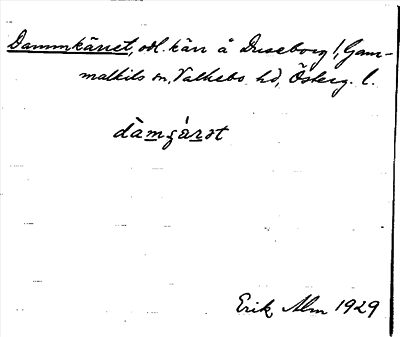 Dammkärret, odl. kärr å Duseborg 1, Gam-
malkils sn, Valkebo hd, Österg. l.
dàmçárət
Erik Alm 1929